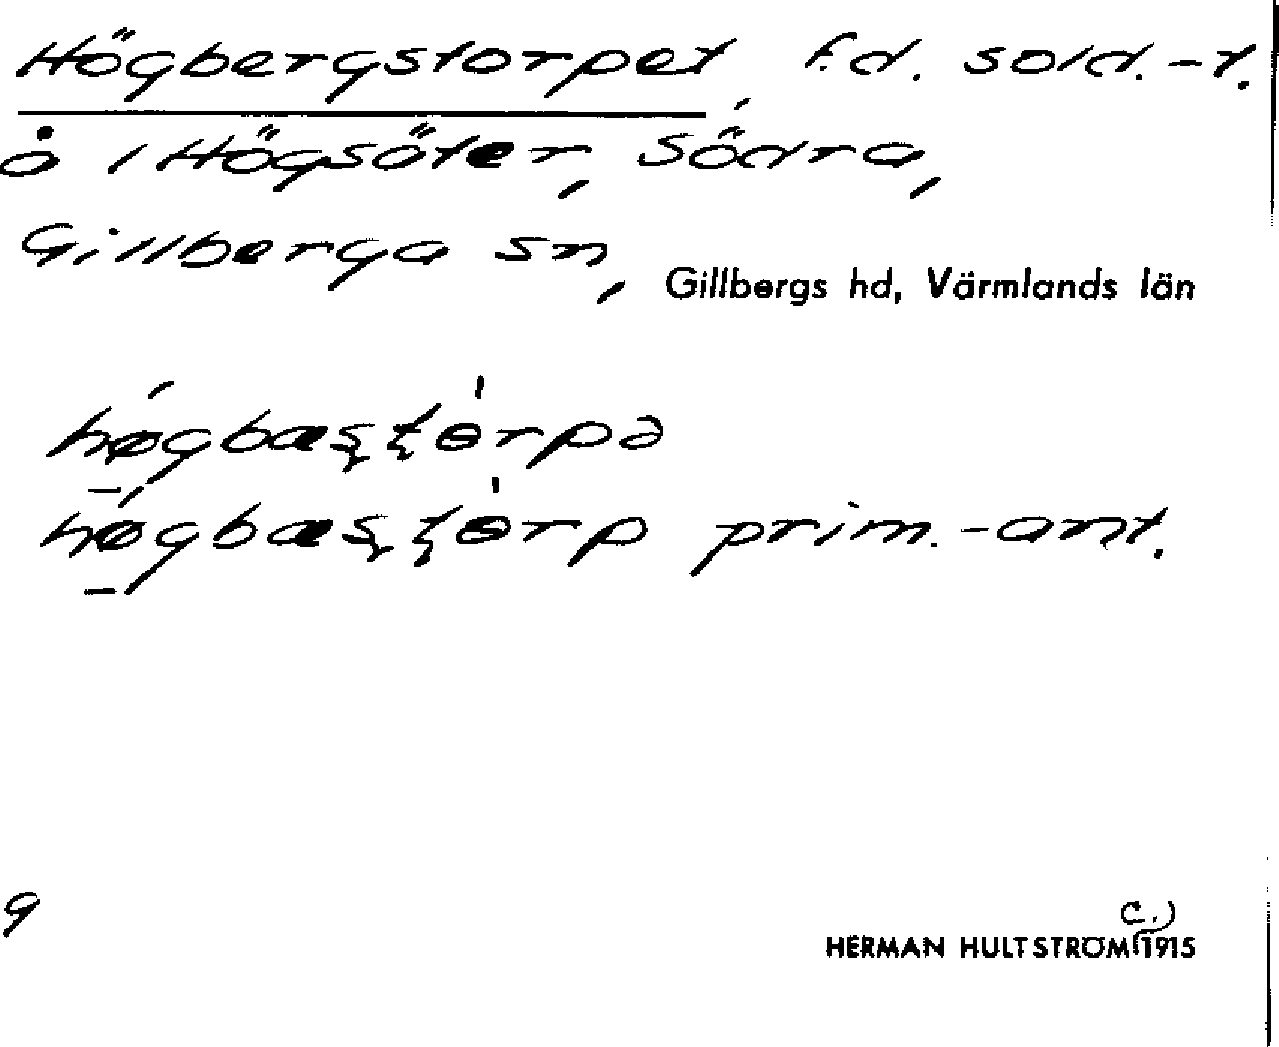 Högbergstorpet, f.d. sold.-t.
å 1 Högsäter, Södra,
Gillberga sn,
Gillbergs hd, Värmlands län
hǿ̱gbæʂʈɵ̍rpə
hǿ̱gbæʂʈɵ̍rp prim.-ant.
9
HERMAN HULTSTRÖM (c.) 1915